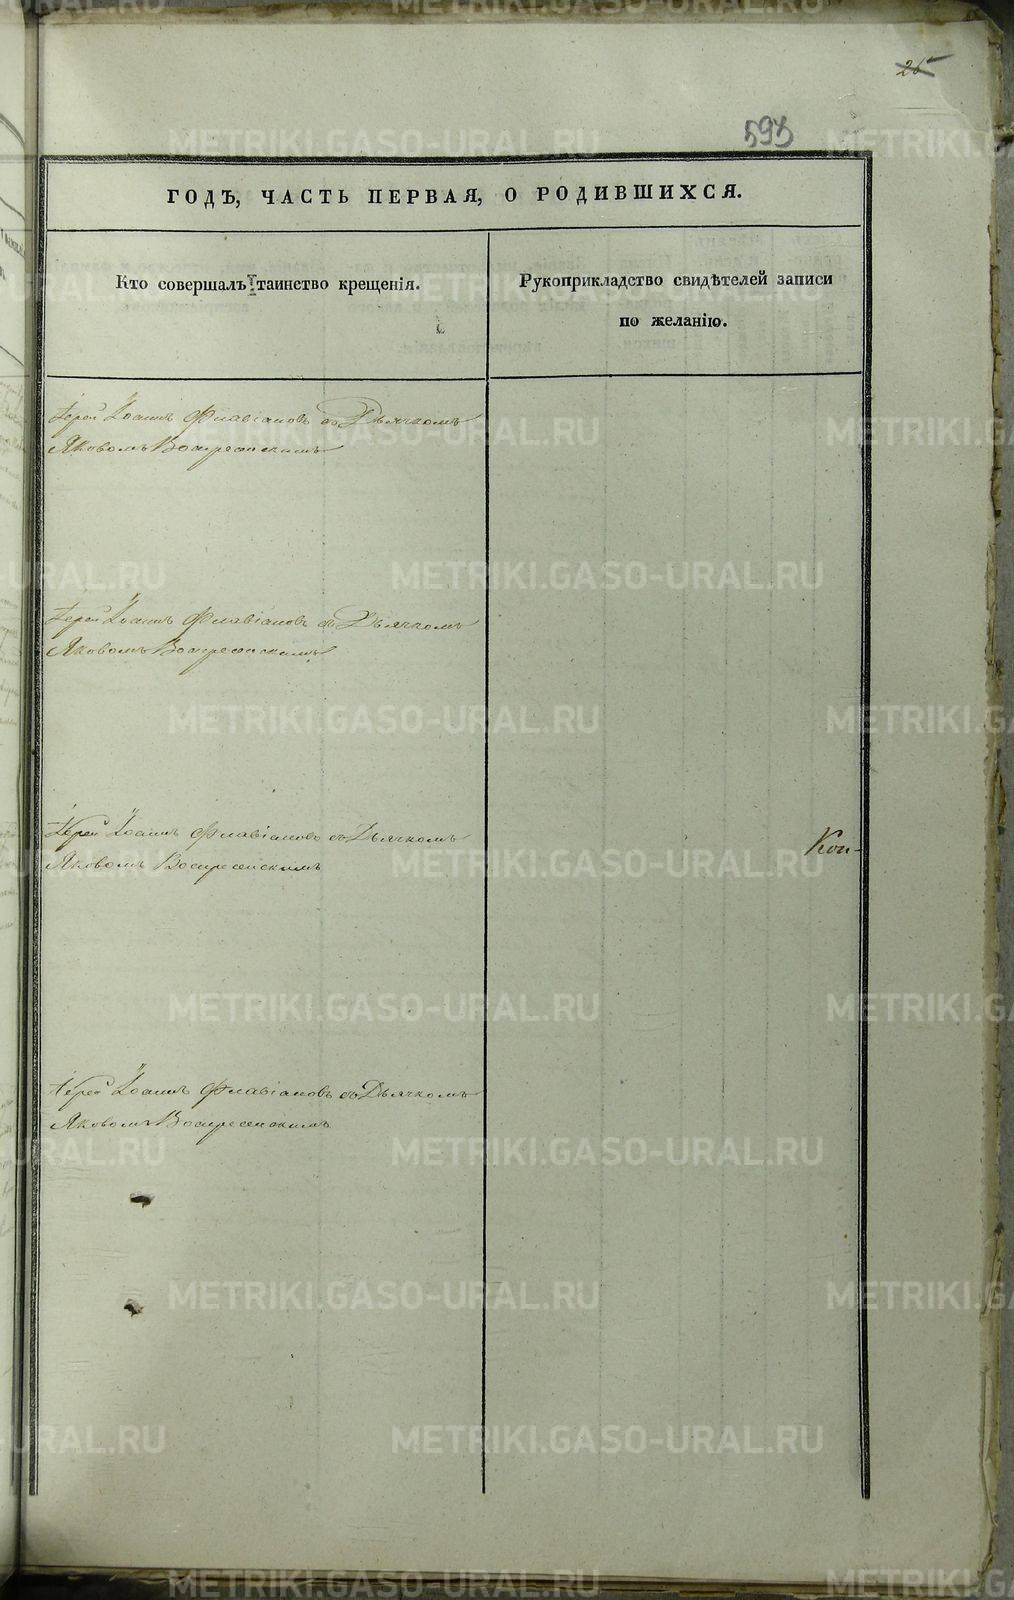 25
593
ГОДЪ, ЧАСТЬ ПЕРВАЯ, О РОДИВШИХСЯ.
Кто совершалъ таинство крещенія.
Рукоприкладство свидѣтелей записи
по желанію.
Іерей Іоаннъ Флавіановъ съ Дьячкомъ
Яковомъ Воскресенскимъ
Іерей Іоаннъ Флавіановъ съ Дьячкомъ
Яковомъ Воскресенскимъ
Іерей Іоаннъ Флавіановъ съ Дьячкомъ
Яковомъ Воскресенскимъ
Іерей Іоаннъ Флавіановъ съ Дьячкомъ
Яковомъ Воскресенскимъ
METRIKI.GASO-URAL.RU